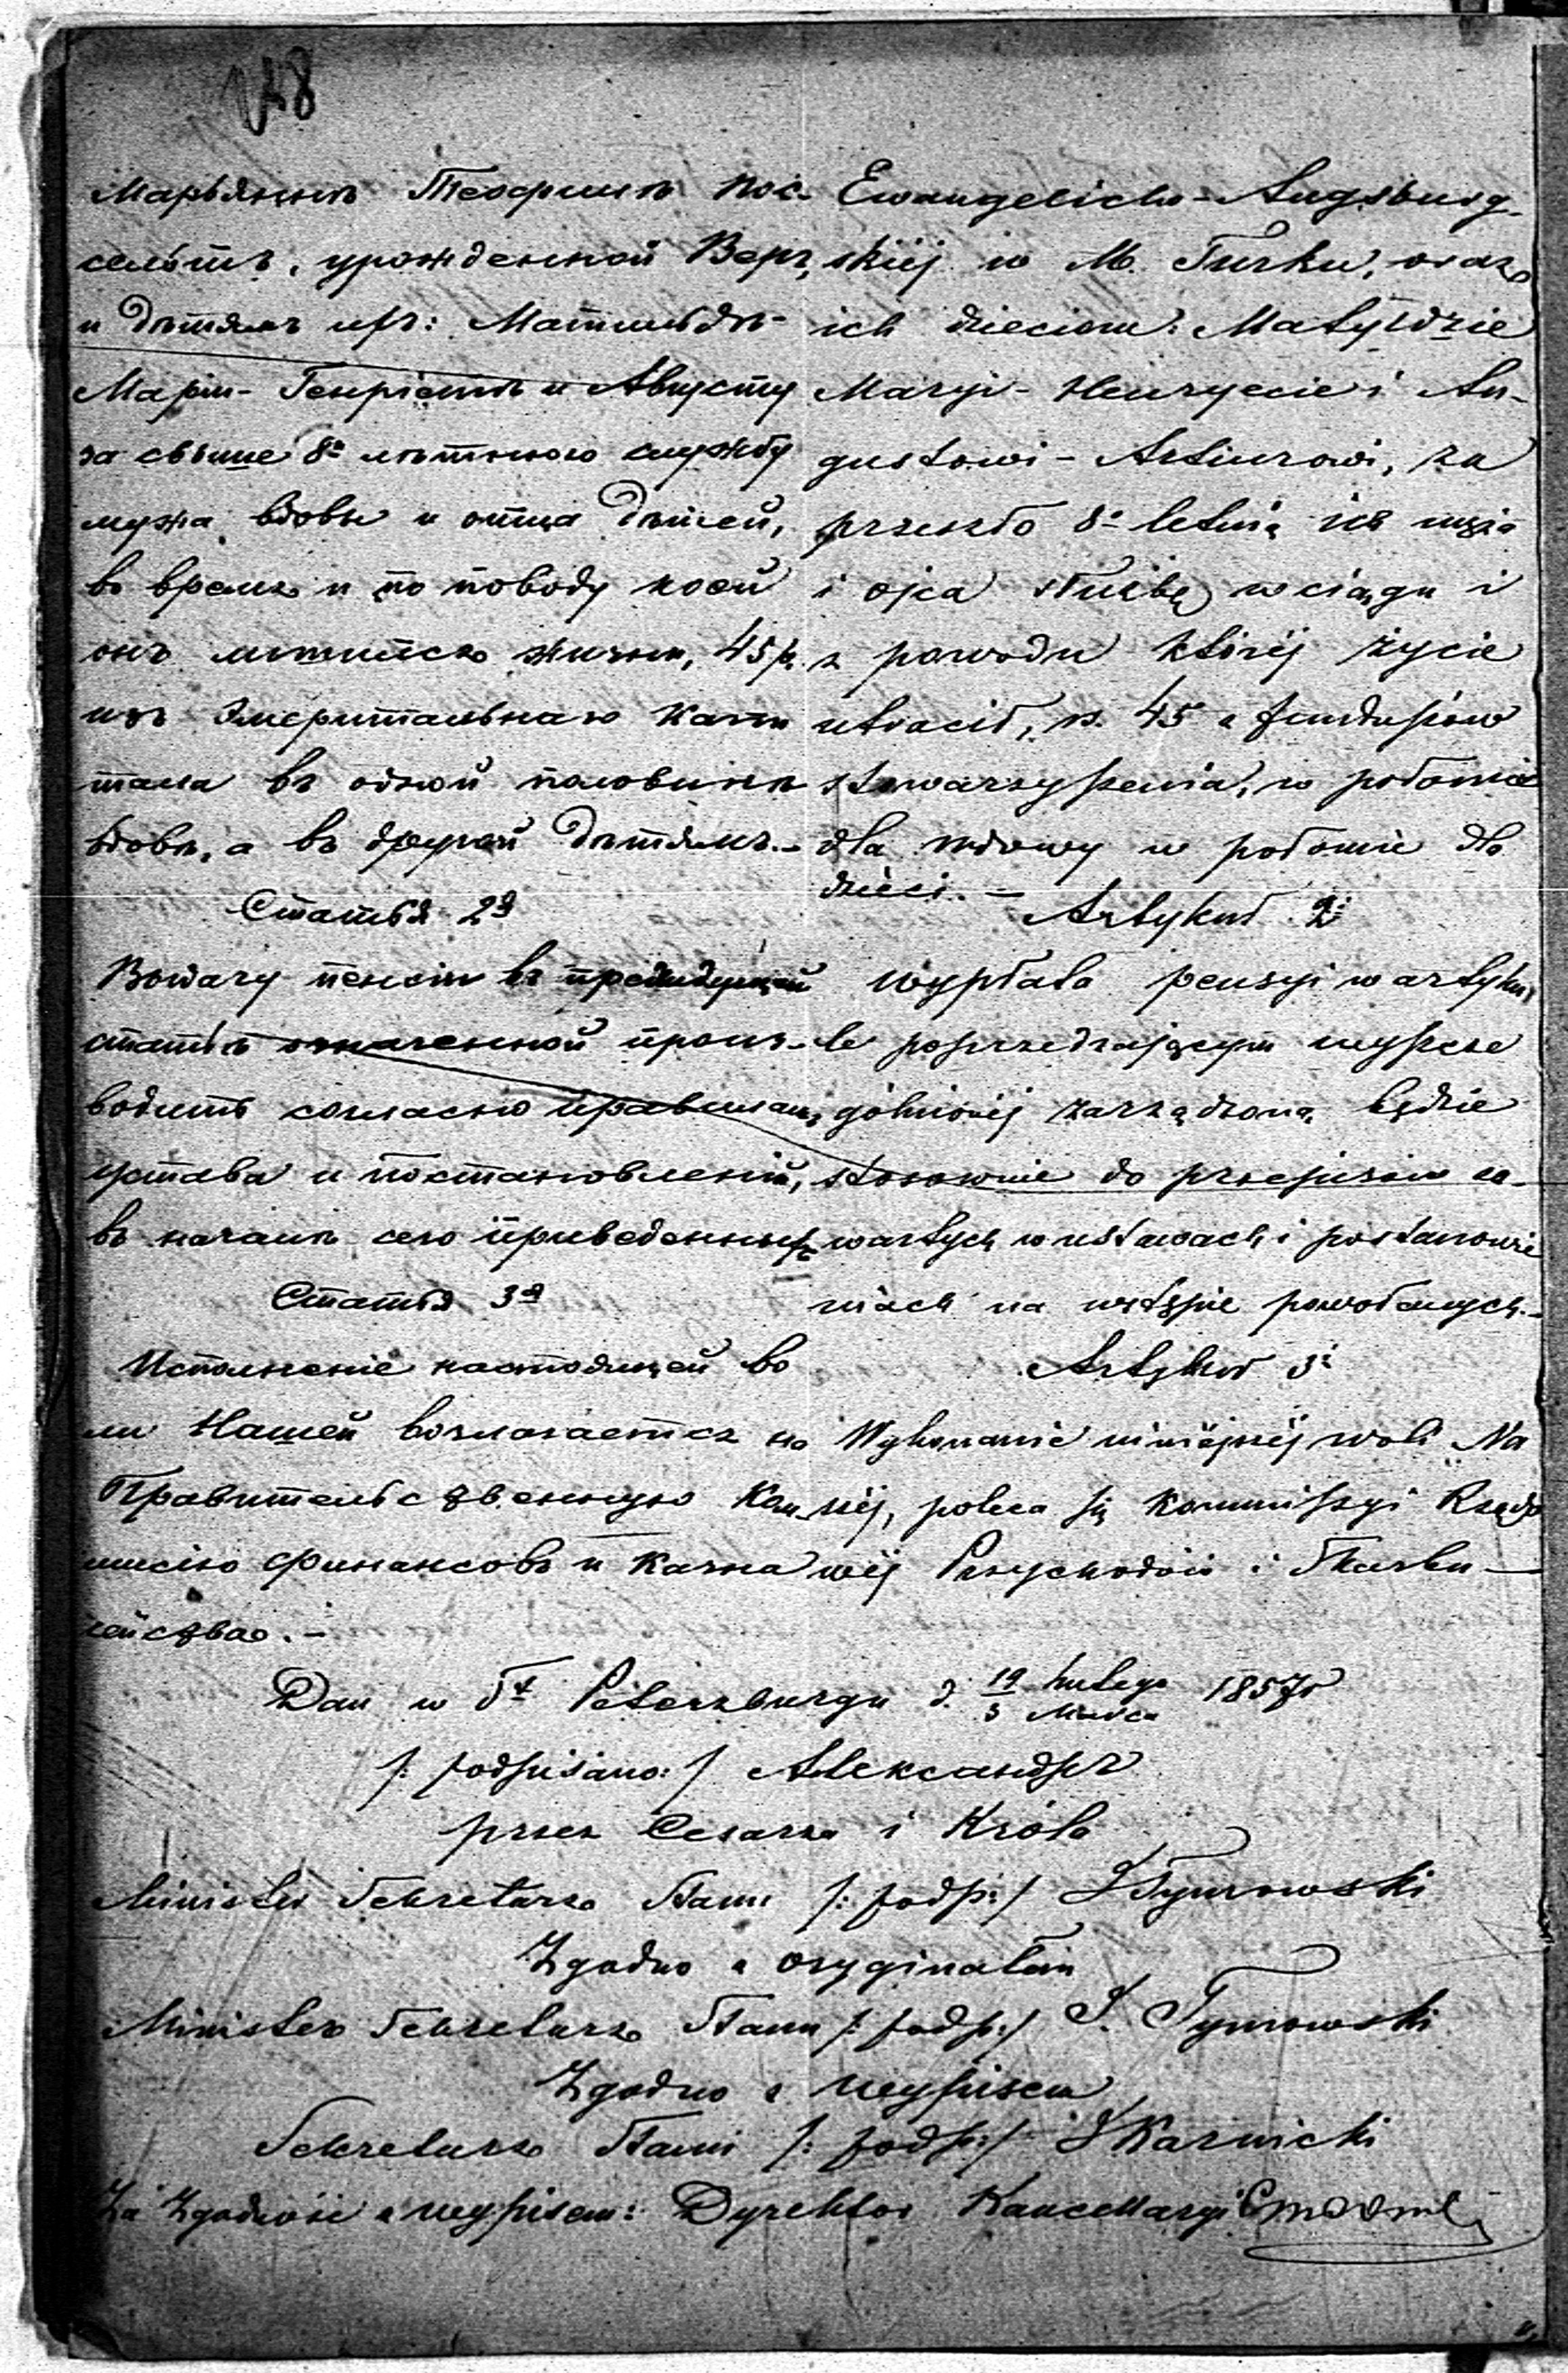 148
Марьянны Теофили пос-
сельтъ, урожденной Верг,
и дѣтямъ ихъ: Матильдѣ-
Маріи-Генріеттѣ и Августу
за свыше 8ми лѣтнюю службу
мужа вдовы и отца дѣтей,
во время и по поводу коей
онъ лишился жизни, 45 р.
изъ Эмеритальнаго капи
тала въ одной половинѣ
вдовѣ, а въ другой дѣтямъ.-
Статья 2я
Выдачу пенсіи въ предыдущей
статьѣ означенной произ-
водить согласно правиламъ,
устава и постановленій,
въ началѣ сего приведенныхъ
Статья 3я
Исполненіе настоящей во
ли Нашей возлагается на
Правительственную Ком-
мисію Финансовъ и Казна
чейства.-
Ewangelicko-Augsburg-
skiéj w M. Turku, oraz
ich dzieciom: Matyldzie
Maryi-Henryecie i Au-
gustowi-Arturowi, za
przeszło 8o letnią ich męża
i ojca służbę w ciągu i
z powodu któréj życie
utracił, rs. 45 z funduszów
stowarzyszenia, w połowie
dla wdowy w połowie dla
dzieci.-
Artykuł 2i
Wypłata pensyi w artyku,
le poprzedzającym wyszcze
gólnionéj zarządzoną będzie
stosownie do przepisów za-
wartych w ustawach i postanowie
niach na wstępie powołanych.-
Artykuł 3i
Wykonanie niniéjszéj woli Na
széj, poleca się Kommissyi Rządo
wéj Przychodów i Skarbu-
Dan w St Petersburgu d. 19/3 Lutego/Marca 1857r
/: podpisano: / Александръ
przez Cesarza i Króla
Minister Sekretarz Stanu /: podp:/ J Tymowski
Zgodno z oryginałem
Minister Sekretarz Stanu /: podp:/ J. Tymowski
Zgodno z wypisem
Sekretarz Stanu /: podp:/ J Karnicki
Za Zgodność z wypisem: Dyrektor Kancellaryi